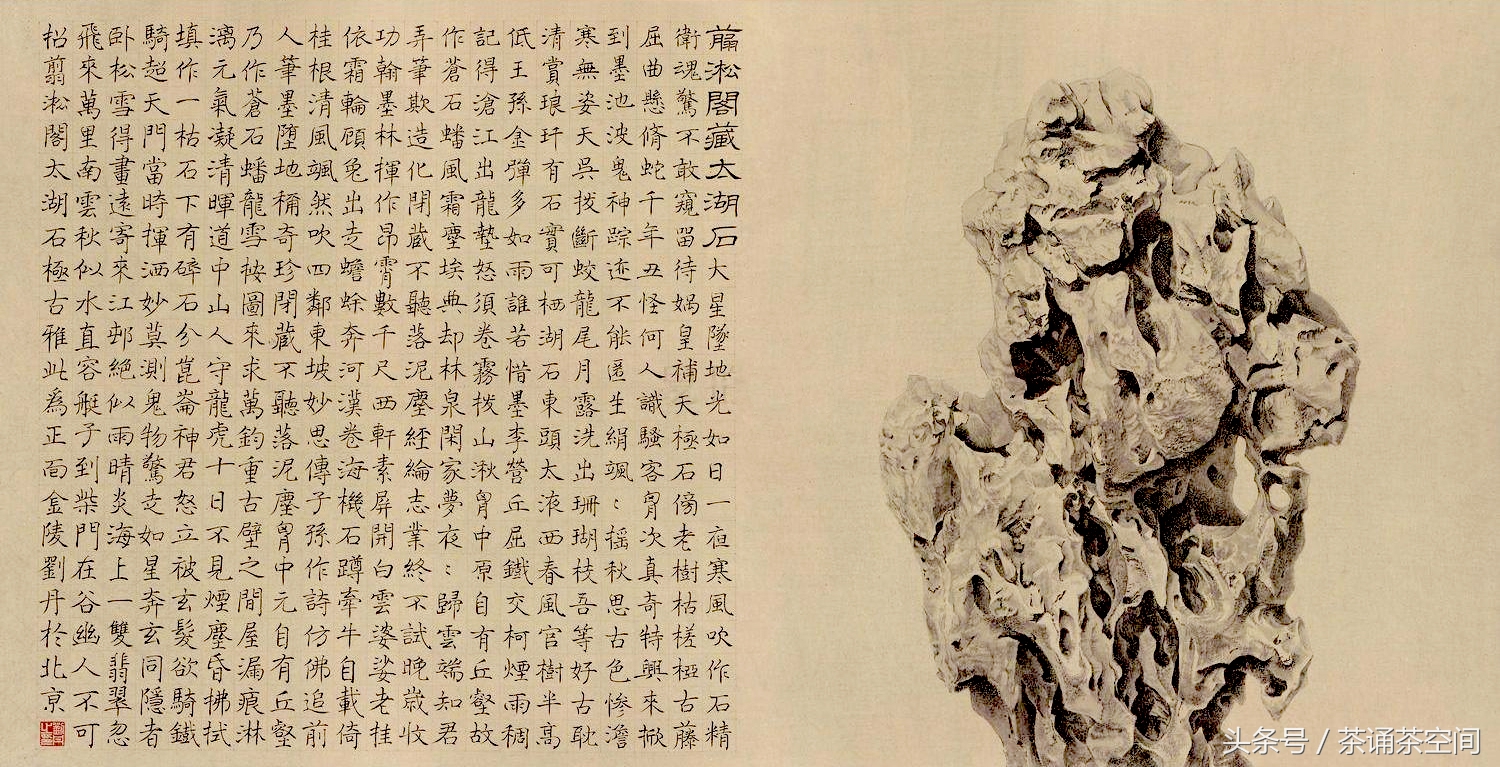 翦淞閣藏太湖石大星墜地光如日一夜寒風吹作石精
衛魂驚不敢窺留待媧皇補天極石傍老樹枯槎椏古藤
屈曲懸脩蛇千年丑怪何人識騷客胷次真奇特興來掀
到墨池波鬼神踪迹不能匿生絹颯〻摇秋思古色慘澹
寒無姿天吳拔斷蛟龍尾月露洗出珊瑚枝吾等好古耽
清賞琅玕有石實可栖湖石東頭太液西春風官樹半高
低王孫金彈多如雨誰若惜墨李營丘屈鐵交柯煙雨稠
記得滄江出龍蟄怒須卷霧拨山湫胷中原自有丘壑故
作蒼石蟠風霜塵埃典却林泉閑家夢夜〻歸雲端知君
弄筆欺造化閉蔵不聽落泥塵經綸志業終不試晚歲收
功翰墨林揮作昂霄數千尺西軒素屏開白雲婆娑老桂
依霜輪顧兔出走蟾蜍奔河漢卷海機石蹲牽牛自載倚
桂根清風颯然吹四鄰東坡妙思傳子孫作詩仿佛追前
人筆墨墮地稱奇珍閉藏不聽落泥塵胷中元自有丘壑
乃作蒼石蟠龍雪桉圖來求萬鈞重古壁之間屋漏痕淋
漓元氣凝清暉道中山人守龍虎十日不見煙塵昏拂拭
填作一枯石下有碎石兮崑崙神君怒立被玄髮欲騎鐵
騎超天門當時揮洒妙莫測鬼物驚走如星奔玄同隱者
卧松雪得畫遠寄來江邨絕似雨晴炎海上一雙翡翠忽
飛來萬里南雲秋似水直容艇子到柴門在谷幽人不可
招翦淞閣太湖石極古雅此為正面金陵劉丹於北京
头条号 / 茶诵茶空间